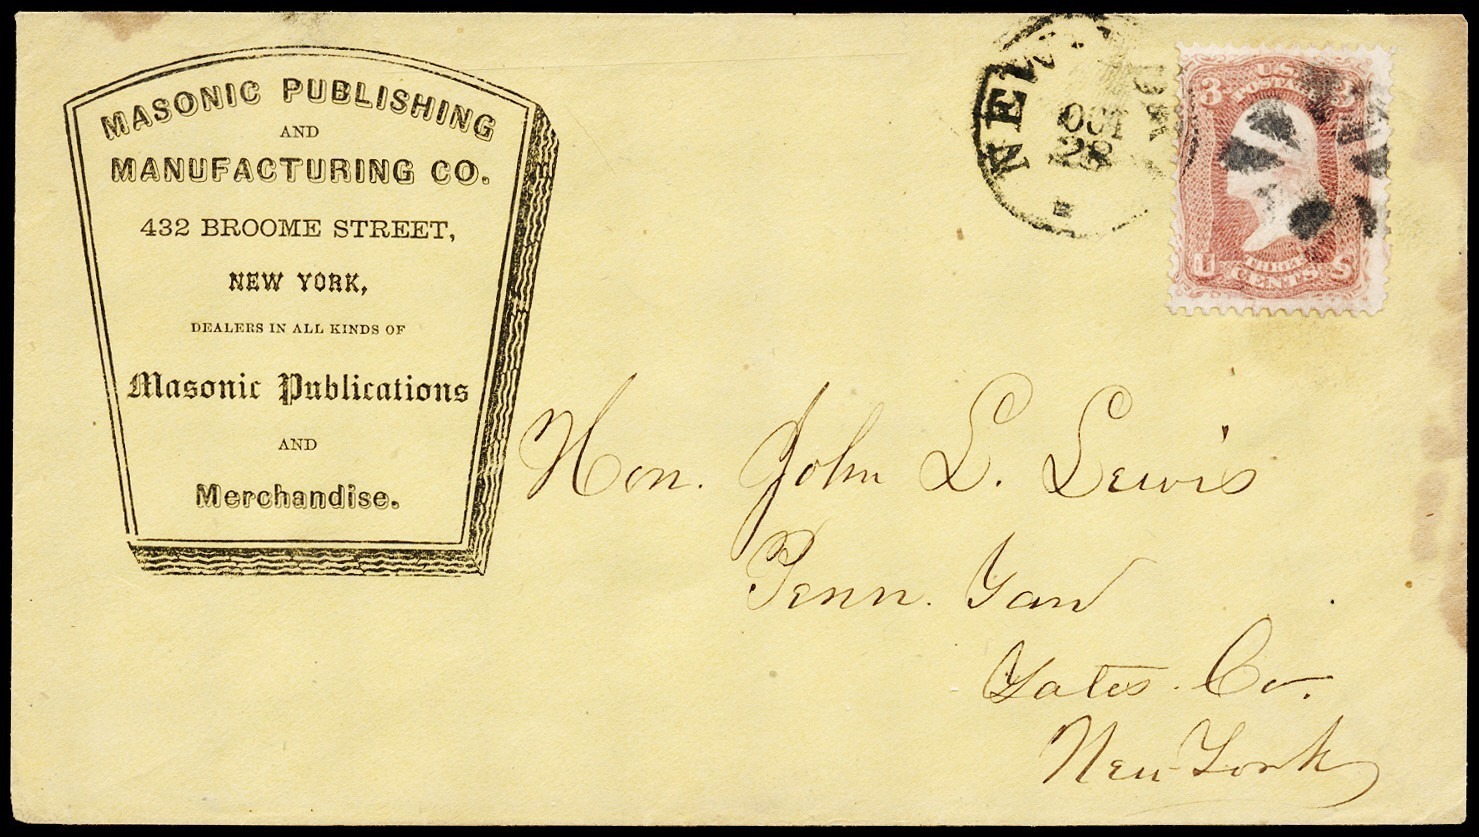 MASONIC PUBLISHING
AND
MANUFACTURING CO.
432 BROOME STREET,
NEW YORK,
DEALERS IN ALL KINDS OF
Masonic Publications
AND
Merchandise.
NEW
OCT
28
U.S.
POSTAGE
3 3
THREE
U CENTS S
Hon. John L. Lewis
Penn. Yan
Yates. Co.
New-York